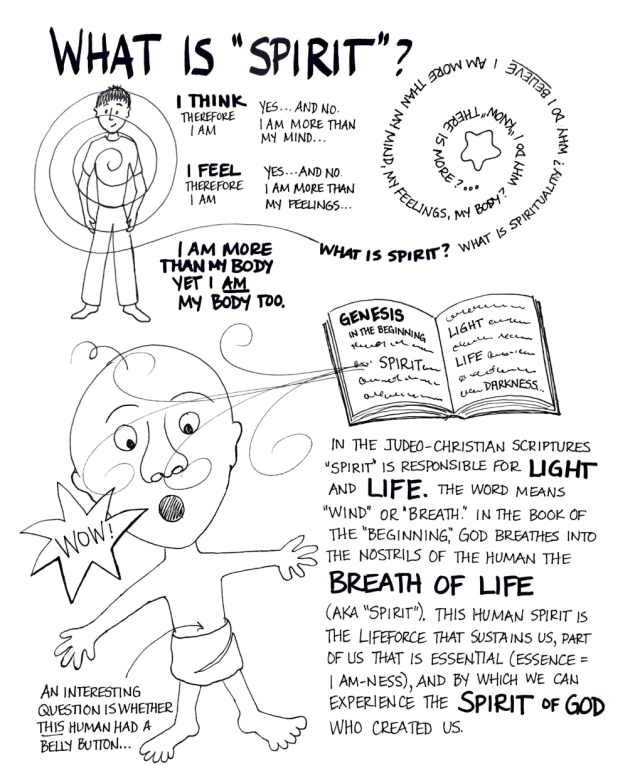 WHAT IS "SPIRIT"?
I THINK
THEREFORE
I AM
YES... AND NO.
I AM MORE THAN
MY MIND...
I FEEL
THEREFORE
I AM
YES...AND NO.
I AM MORE THAN
MY FEELINGS...
I AM MORE
THAN MY BODY
YET I AM
MY BODY TOO.
WHAT IS SPIRIT? WHAT IS SPIRITUALITY? WHY DO I BELIEVE I AM MORE THAN MY MIND, MY FEELINGS, MY BODY? WHY DO I "KNOW" THERE IS MORE?...
GENESIS
IN THE BEGINNING
SPIRIT
LIGHT
LIFE
DARKNESS...
WOW!
IN THE JUDEO-CHRISTIAN SCRIPTURES
"SPIRIT" IS RESPONSIBLE FOR LIGHT
AND LIFE. THE WORD MEANS
"WIND" OR "BREATH." IN THE BOOK OF
THE "BEGINNING," GOD BREATHES INTO
THE NOSTRILS OF THE HUMAN THE
BREATH OF LIFE
(AKA "SPIRIT"). THIS HUMAN SPIRIT IS
THE LIFEFORCE THAT SUSTAINS US, PART
OF US THAT IS ESSENTIAL (ESSENCE =
I AM-NESS), AND BY WHICH WE CAN
EXPERIENCE THE SPIRIT OF GOD
WHO CREATED US.
AN INTERESTING
QUESTION IS WHETHER
THIS HUMAN HAD A
BELLY BUTTON...